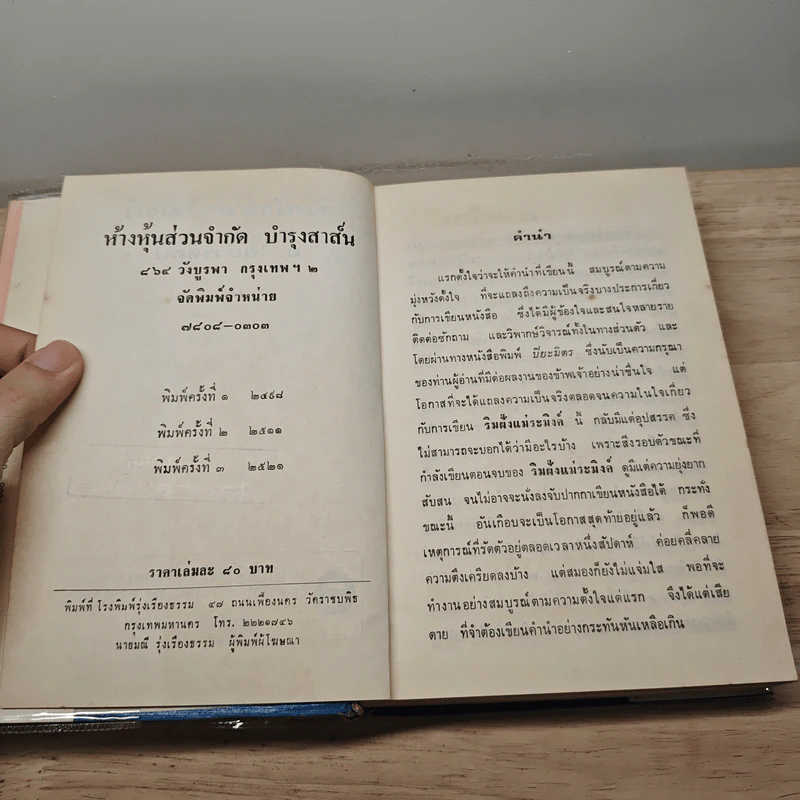 ห้างหุ้นส่วนจำกัด บำรุงสาส์น
๘๖๔ วังบูรพา กรุงเทพฯ ๒
จัดพิมพ์จำหน่าย
๗๘๐๘-๐๓๐๓
พิมพ์ครั้งที่ ๑ ๒๔๙๘
พิมพ์ครั้งที่ ๒ ๒๕๑๑
พิมพ์ครั้งที่ ๓ ๒๕๒๑
ราคาเล่มละ ๘๐ บาท
พิมพ์ที่ โรงพิมพ์รุ่งเรืองธรรม ๔๗ ถนนเฟื่องนคร วัดราชบพิธ
กรุงเทพมหานคร โทร. ๒๒๒๑๗๔๖
นายมณี รุ่งเรืองธรรม ผู้พิมพ์ผู้โฆษณา
คำนำ
แรกตั้งใจว่าจะให้คำนำที่เขียนนี้ สมบูรณ์ตามความ
มุ่งหวังตั้งใจ ที่จะแถลงถึงความเป็นจริงบางประการเกี่ยว
กับการเขียนหนังสือ ซึ่งได้มีผู้ข้องใจและสนใจหลายราย
ติดต่อซักถาม และวิพากษ์วิจารณ์ทั้งในทางส่วนตัว และ
โดยผ่านทางหนังสือพิมพ์ ปิยะมิตร ซึ่งนับเป็นความกรุณา
ของท่านผู้อ่านที่มีต่อผลงานของข้าพเจ้าอย่างน่าชื่นใจ แต่
โอกาสที่จะได้แถลงความเป็นจริงตลอดจนความในใจเกี่ยว
กับการเขียน ริมฝั่งแม่ระมิงค์ นี้ กลับมีแต่อุปสรรค ซึ่ง
ไม่สามารถจะบอกได้ว่ามีอะไรบ้าง เพราะสิ่งรอบตัวขณะที่
กำลังเขียนตอนจบของ ริมฝั่งแม่ระมิงค์ ดูมีแต่ความยุ่งยาก
สับสน จนไม่อาจจะนั่งลงจับปากกาเขียนหนังสือได้ กระทั่ง
ขณะนี้ อันเกือบจะเป็นโอกาสสุดท้ายอยู่แล้ว ก็พอดี
เหตุการณ์ที่รัดตัวอยู่ตลอดเวลาหนึ่งสัปดาห์ ค่อยคลี่คลาย
ความตึงเครียดลงบ้าง แต่สมองก็ยังไม่แจ่มใส พอที่จะ
ทำงานอย่างสมบูรณ์ตามความตั้งใจแต่แรก จึงได้แต่เสีย
ดาย ที่จำต้องเขียนคำนำอย่างกระทันหันเหลือเกิน